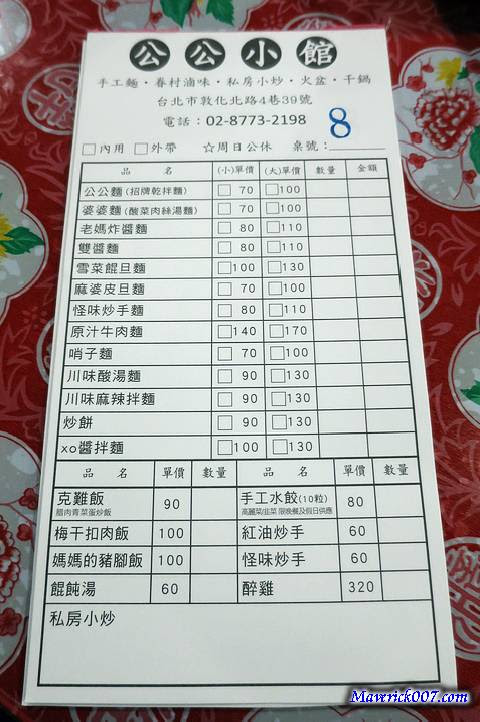 公公小館
手工麵・眷村滷味・私房小炒・火盆・干鍋
台北市敦化北路4巷39號
電話：02-8773-2198
8
□內用 □外帶 ☆周日公休 桌號：
品 名 (小)單價 (大)單價 數量 金額
公公麵(招牌乾拌麵) □ 70 □100
婆婆麵(酸菜肉絲湯麵) □ 70 □100
老媽炸醬麵 □ 80 □110
雙醬麵 □ 80 □110
雪菜餛旦麵 □100 □130
麻婆皮旦麵 □ 70 □100
怪味炒手麵 □ 80 □110
原汁牛肉麵 □140 □170
哨子麵 □ 70 □100
川味酸湯麵 □ 90 □130
川味麻辣拌麵 □ 90 □130
炒餅 □ 90 □130
xo醬拌麵 □100 □130
品 名 單價 數量 品 名 單價 數量
克難飯 90 手工水餃(10粒) 80
腊肉青菜蛋炒飯 高麗菜/韭菜 限晚餐及假日供應
梅干扣肉飯 100 紅油炒手 60
媽媽的豬腳飯 100 怪味炒手 60
餛飩湯 60 醉雞 320
私房小炒
Maverick007.com